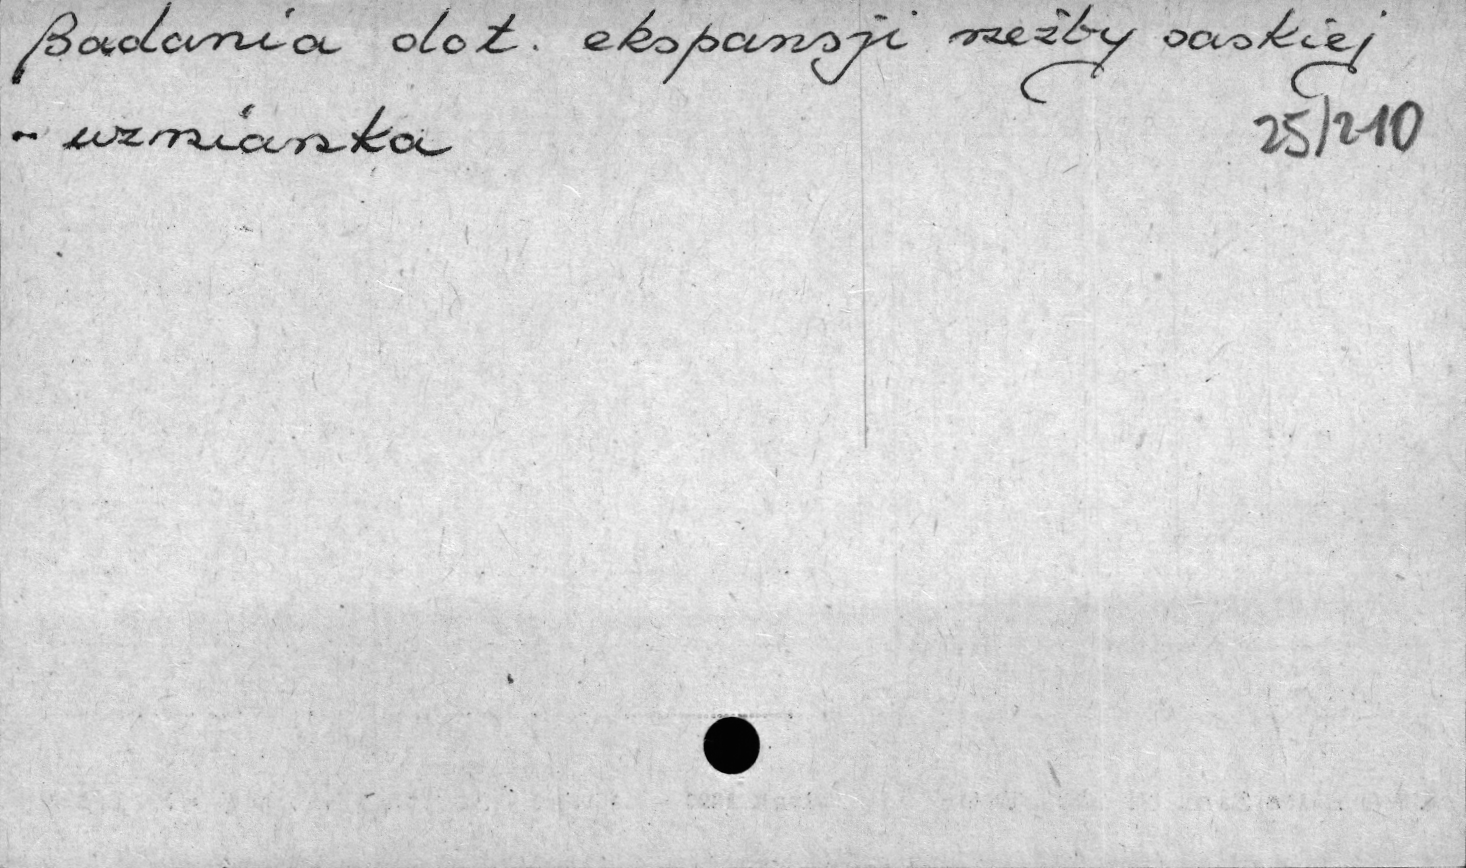 Badania dot. ekspansji rzeźby saskiej
- wzmianka
25/210